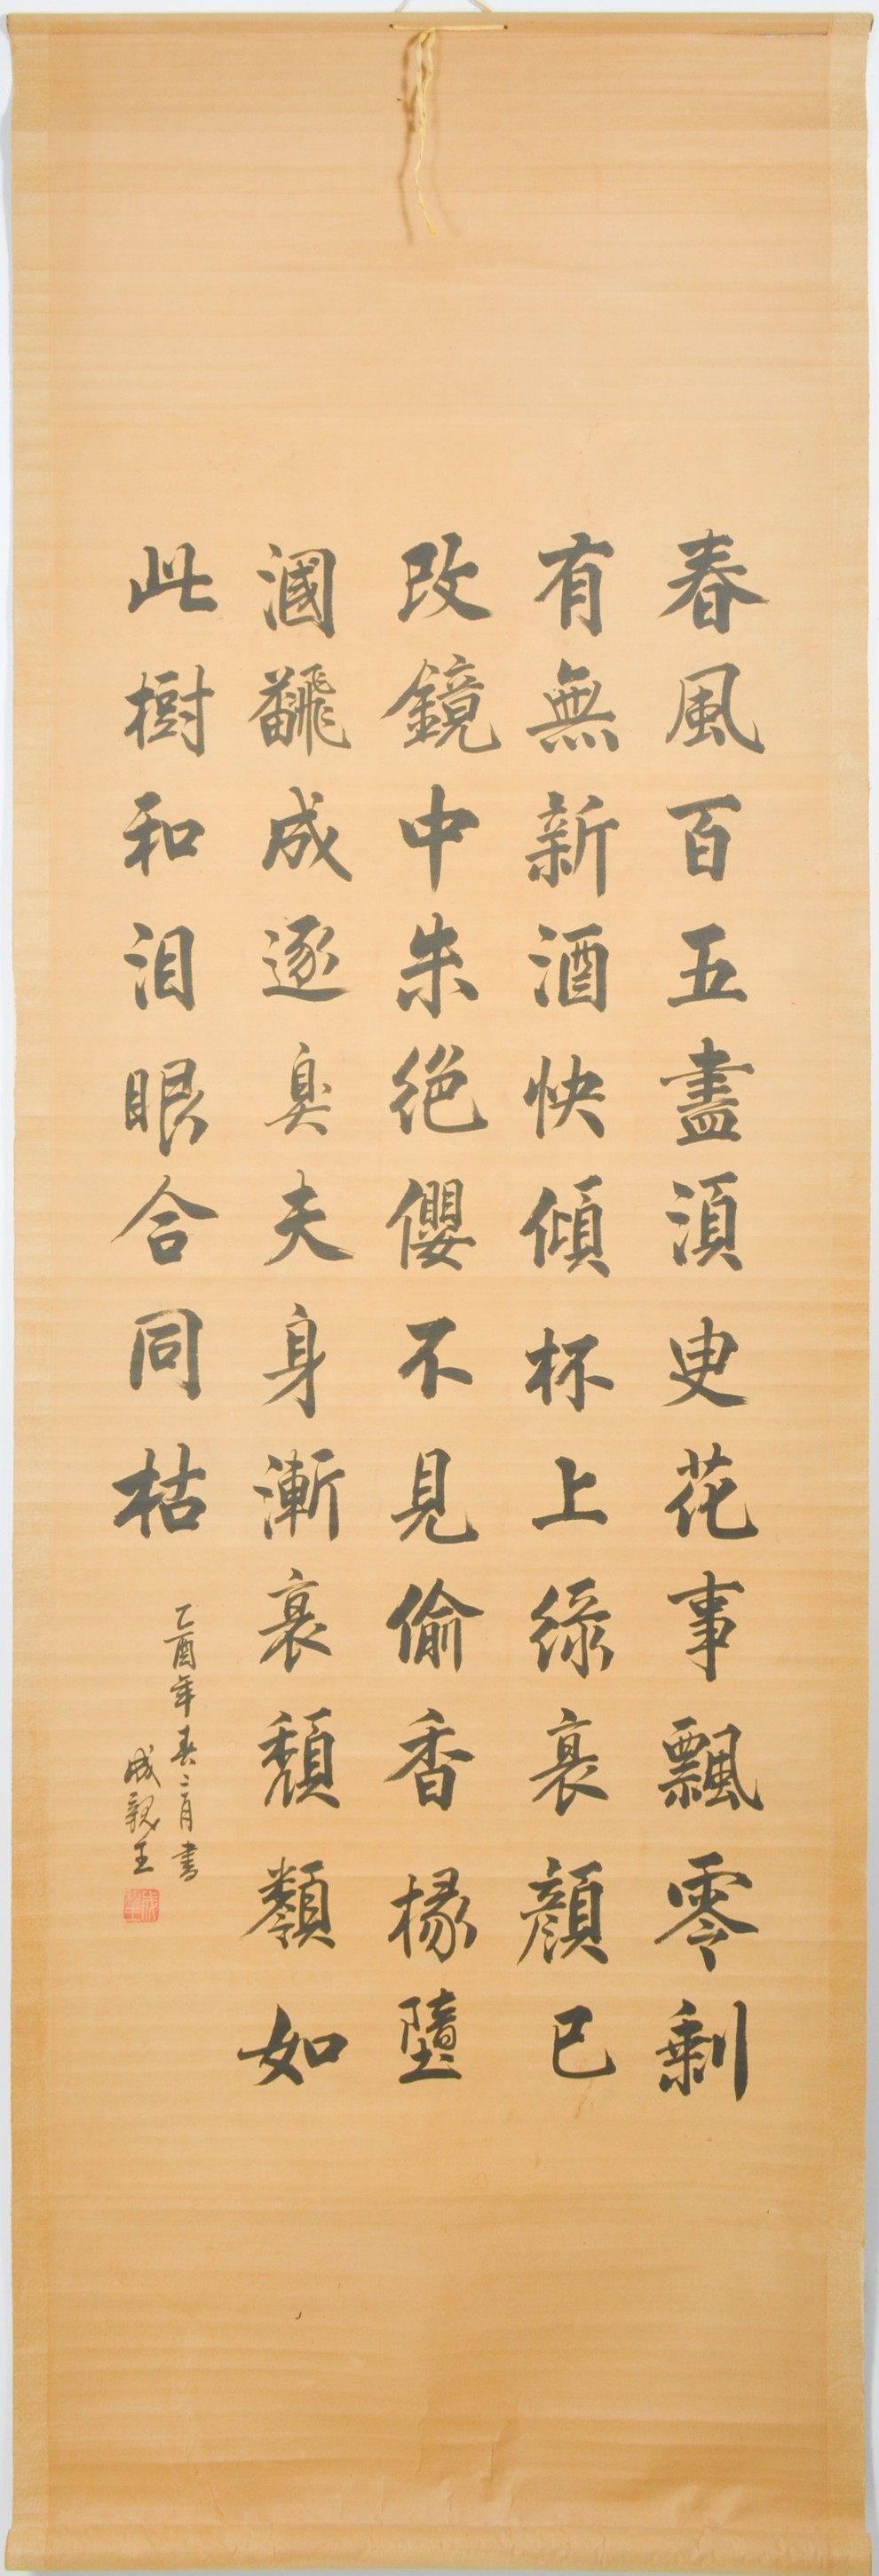 春風百五盡須臾花事飄零剩
有無新酒快傾杯上綠衰顏已
改鏡中朱絕纓不見偷香椽墮
溷翻成逐臭夫身漸衰頹類如
此樹和泪眼合同枯
乙酉年春二月書
成親王